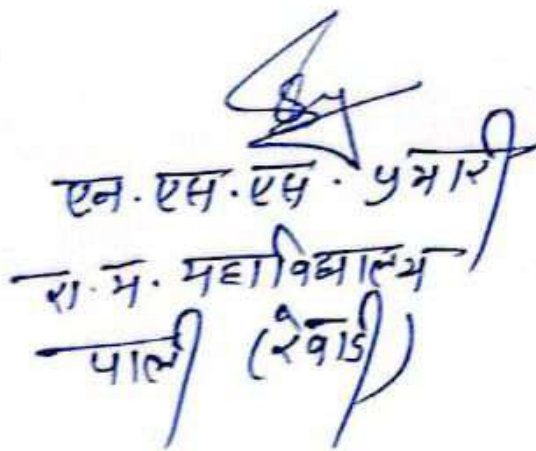 एन. एस. एस. प्रभारी
रा. म. महाविद्यालय
पाली (रेवाड़ी)